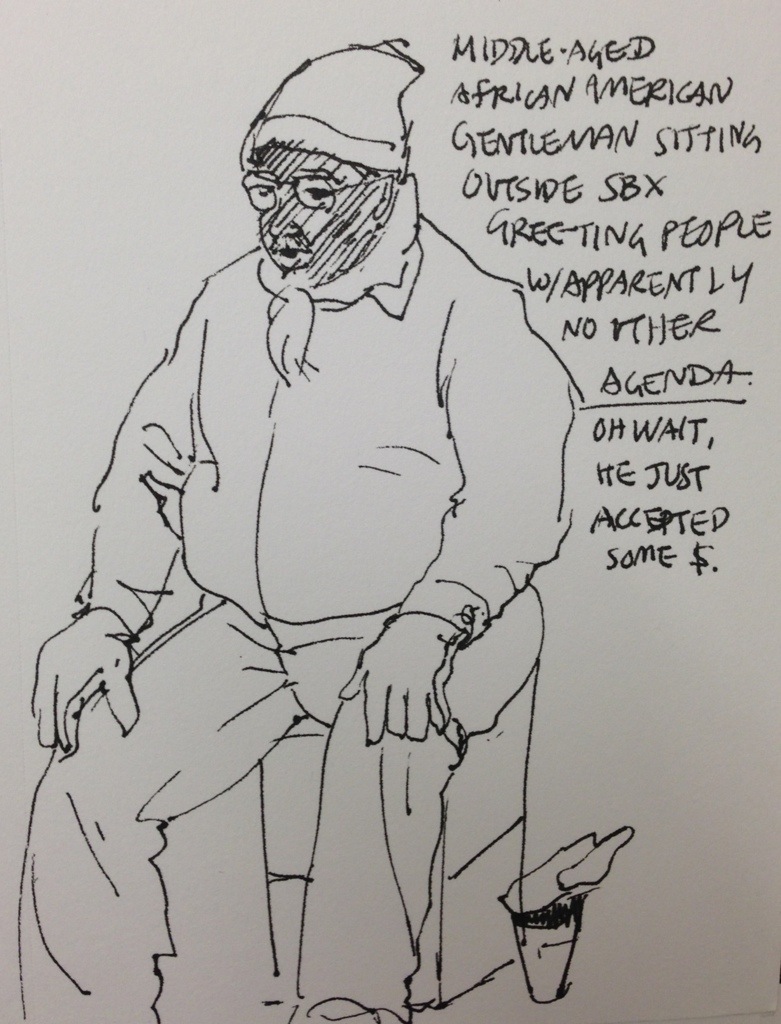 MIDDLE-AGED
AFRICAN AMERICAN
GENTLEMAN SITTING
OUTSIDE SBX
GREETING PEOPLE
W/APPARENTLY
NO OTHER
AGENDA.
OH WAIT,
HE JUST
ACCEPTED
SOME $.